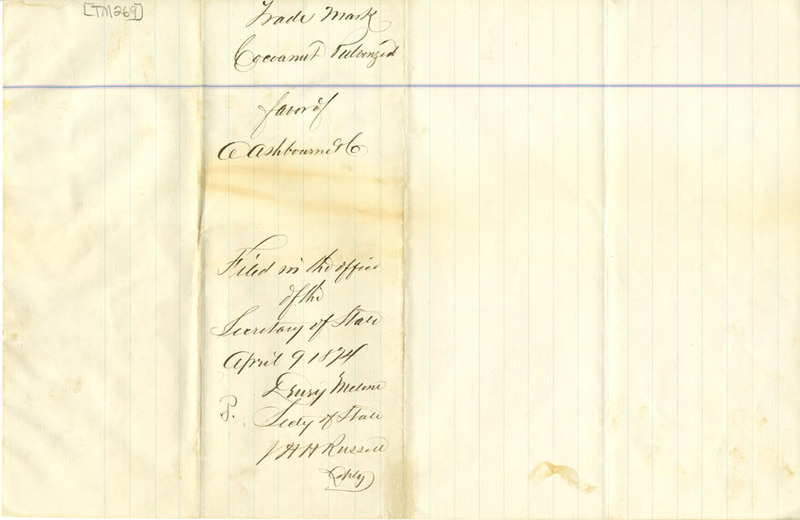 [TM269]
Trade Mark
Cocoanut Pulverized
favor of
A Ashbourne & Co
Filed in the office
of the
Secretary of State
April 9 1874
Drury Melone
P. Secty of State
HH Russell
Dpty